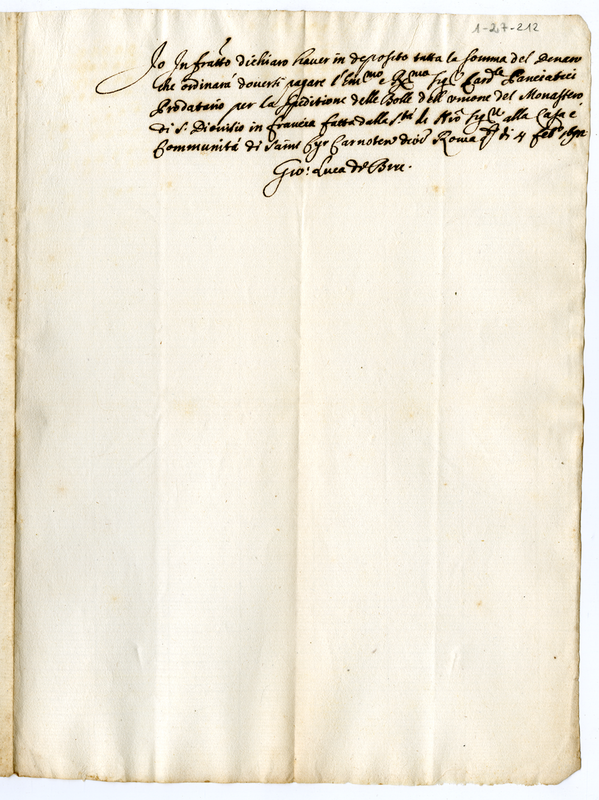 1-27-212
Io Infratto dichiaro haver in deposito tutta la somma del denaro
che ordinará doversi pagare l'Em.mo e R.mo Sig.r Card.le Panciatici
Prodatario per la speditione delle Bolle dell'unione del Monastero
di S. Dionisio in francia fatta dalla S.tà di N'ro Sig.re alla Casa é
Communitá di Saint Cyr Carnoten dioc Roma di 4 feb.o
Gio: Luca de Bru.